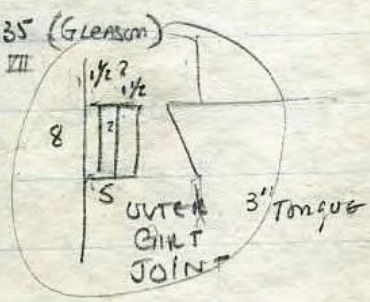 35 (GLEASON)
VII
1½ 2
1½
8
2
5
OUTER
GIRT
JOINT
3" TONGUE